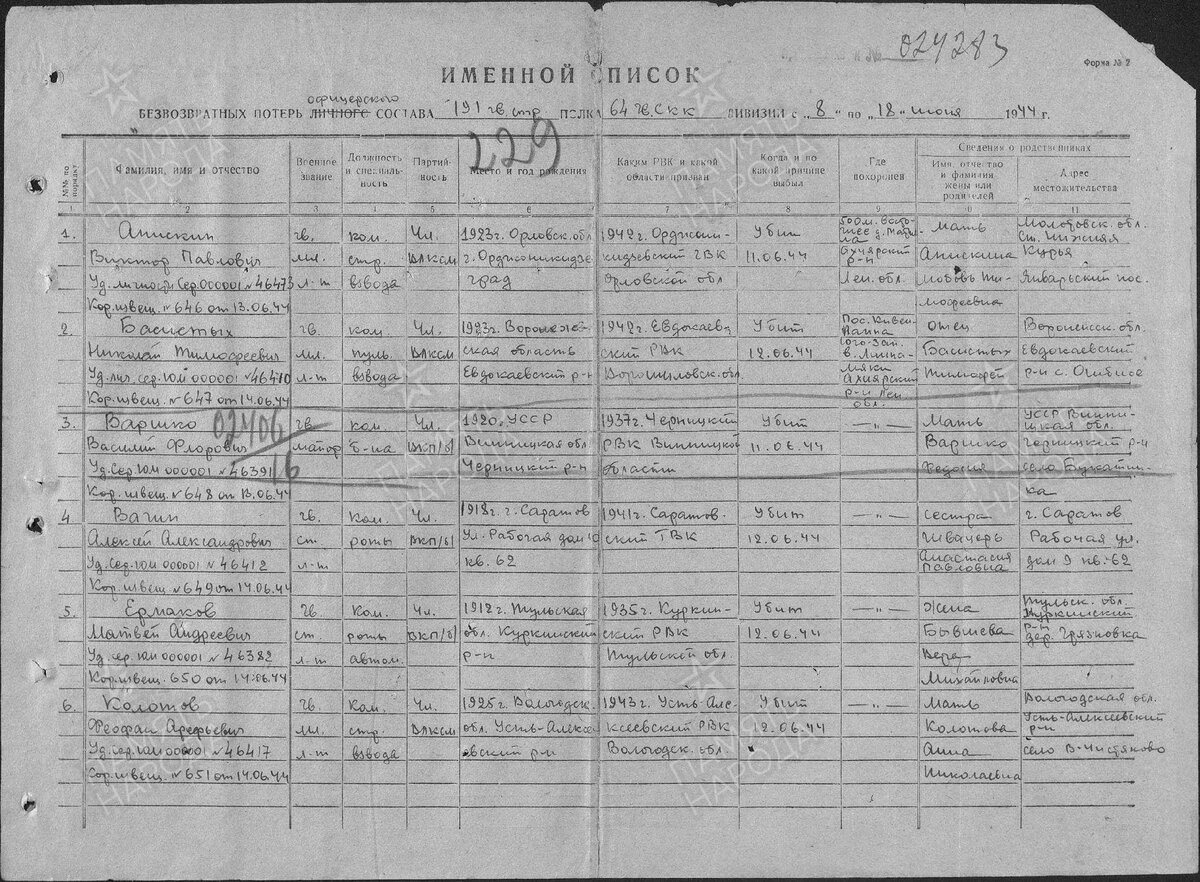 024283
Форма № 2
ИМЕННОЙ СПИСОК
офицерского
БЕЗВОЗВРАТНЫХ ПОТЕРЬ ЛИЧНОГО СОСТАВА 191 гв. стр. ПОЛКА 64 гв. СКК ДИВИЗИИ с "8" по "18" июня 1944 г.
229
№№ по порядку
Фамилия, имя и отчество
Военное звание
Должность и специальность
Партийность
Место и год рождения
Каким РВК и какой области призван
Когда и по какой причине выбыл
Где похоронен
Сведения о родственниках
Имя, отчество и фамилия жены или родителей
Адрес местожительства
1 2 3 4 5 6 7 8 9 10 11
1. Анискин гв. ком. Чл. 1923г. Орловск. обл 1942г. Орджони- Убит 500м. восточнее д. Мать Молотовск. обл. ст. Чижняя
Виктор Павлович мл. стр. ВЛКСМ г. Орджоникидзе кидзевский ГВК 11.06.44 р-н Анискина Курья
Уд. личности Сер. 000001 № 46473 л-т взвода град Орловской обл Лен. обл. Любовь Ти- Январьский пос.
Кор. извещ. № 646 от 13.06.44 мофеевна
2. Басистых гв. ком. Чл. 1923г. Воронеж- 1942г. Евдокаев Убит Пос. отец Воронежск. обл.
Николай Тимофеевич мл. пуль. ВЛКСМ ская область ский РВК 12.06.44 юго-зап. Басистых Евдокаевский
Уд. лич. сер. ЮМ 000001 № 46410 л-т взвода Евдокаевский р-н Ворошиловск. обл Тимофей р-н с.
Кор. извещ. № 647 от 14.06.44 р-н Лен обл.
02406
3. Варшко гв. ком. Чл. 1920г. УССР 1937г. Черницкий Убит —"— Мать УССР Винницкая обл.
Василий Флорович майор б-на ВКП/б/ Винницкая обл РВК Винницкой 11.06.44 Варшко Черницкий р-н
Уд. Сер. ЮМ 000001 № 46391 16 Черницкий р-н области Федосия село
Кор. извещ № 648 от 13.06.44 ка
4 Вагин гв. ком. Чл. 1918г. г. Саратов 1941г. Саратов Убит —"— сестра г. Саратов
Алексей Александрович ст. роты ВКП/б/ Ул. Рабочая дом ский ГВК 12.06.44 Швачерь Рабочая ул.
Уд. Сер. ЮМ 000001 № 46412 л-т кв. 62 Анастасия Павловна дом 9 кв. 62
Кор. извещ № 649 от 14.06.44
5. Ермаков гв. Ком. Чл. 1912г. Тульская 1935г. Куркин- Убит —"— Жена Тульск. обл.
Матвей Андреевич ст. роты ВКП/б/ обл. Куркинский ский РВК 12.06.44 Бывшева Куркинский р-н дер. Грязновка
Уд. сер. ЮМ 000001 № 46382 л-т автом. р-н Тульской обл. Вера
Кор. извещ. 650 от 14.06.44 Михайловна
6. Колотов гв. Ком. Чл. 1925г. Вологодск. 1943г. Усть-Але- Убит —"— Мать Вологодская обл.
Феофан Арефьевич мл стр. ВЛКСМ обл. Усть-Алексе ксеевский РВК 12.06.44 Колотова Усть-Алексеевский р-н
Уд. сер. ЮМ 00000 № 46417 л-т взвода евский р-н Вологодск. обл Анна село В-Чистяково
Кор. извещ. № 651 от 14.06.44 Николаевна
ПАМЯТЬ НАРОДА